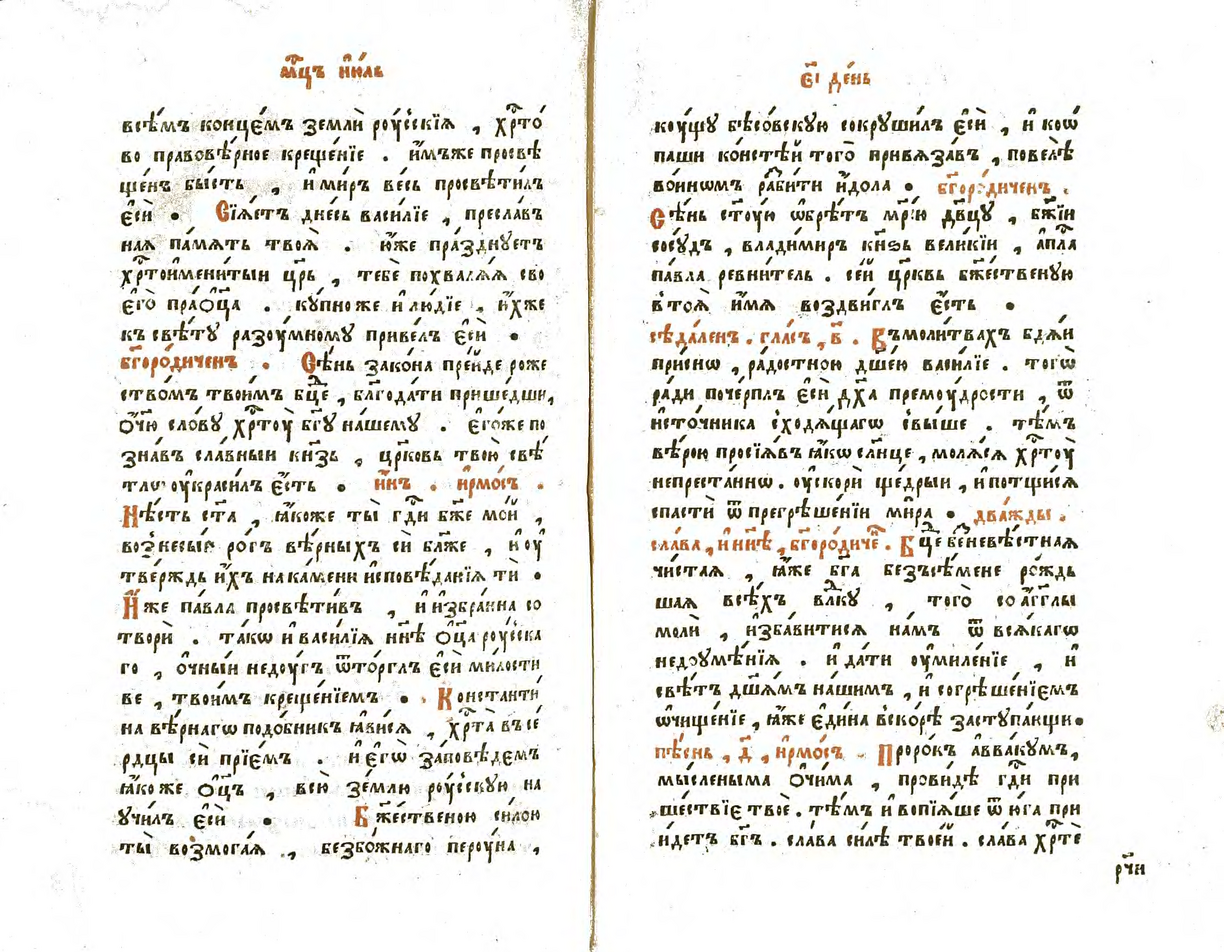 мⷭ҇цъ ию́ль
всѣ́мъ конце́мъ землѝ роу́сскїѧ , хрⷭ҇то́
во правовѣ́рное креще́нїе . и҆́мъже просвѣ
ще́нъ бы́сть , и҆ ми́ръ ве́сь просвѣти́лъ
є҆сѝ . Сїѧ́етъ дне́сь васи́лїе , пресла́в
наѧ па́мѧть твоѧ̀ . ю҆́же пра́зднꙋетъ
хрⷭ҇тои҆мени́тыи цр҃ь , тебѐ похвалѧ́ѧ сво
є҆го̀ пра́ѻ҆ц҃а . кꙋ́пноже и҆ лю́дїе , и҆́хже
къ свѣ́тꙋ разоу́мномꙋ приве́лъ є҆сѝ .
бг҃оро́диченъ . Сѣ́нь зако́на пре́йде роже
ство́мъ твои́мъ бц҃е , благода́ти прише́дши,
ѻ҆́ч҃ю сло́вꙋ хрⷭ҇тоу̀ бг҃ꙋ на́шемꙋ . є҆го́же по
зна́въ сла́вныи кнѧ́зь , цр҃ковь твою̀ свѣ́
тлѡ оу҆кра́силъ є҆́сть . и҆́нъ . і҆рмо́съ .
Нѣ́сть ст҃а , ꙗ҆́коже ты̀ гдⷭ҇и бж҃е мо́й ,
вознесы́й ро́гъ вѣ́рныхъ сѝ бл҃же , и҆ оу҆
твє́рждь и҆́хъ на ка́мени и҆сповѣ́данїѧ тѝ .
И҆́же па́вла просвѣти́въ , и҆ и҆збра́нна со
творѝ . та́кѡ и҆ васи́лїѧ нн҃ѣ ѻ҆ц҃а роу́сска
го , ѻ҆́чныи недоу́гъ ѿто́рглъ є҆сѝ ми́лости
ве , твои́мъ креще́нїемъ . Константи́
на вѣ́рнагѡ подо́бникъ ꙗ҆ви́сѧ , хрⷭ҇та̀ въ се́
рдцы сѝ прїе́мъ . и҆ є҆гѡ̀ за́повѣдемъ
ꙗ҆́коже ѻ҆ц҃ъ , всю̀ зе́млю роу́сскꙋю на
ꙋчи́лъ є҆сѝ . Бж҃е́ственою си́лою
ты̀ возмога́ѧ , безбо́жнаго пероу́на ,
є҃і де́нь
коу́щꙋ бѣсо́вскꙋю сокрꙋши́лъ є҆сѝ , и҆ ко́ѡ
паши ко́нстѣ́й того̀ привѧза́въ , повелѣ̀
во́инѡмъ ра́бити и҆́дола . бг҃оро́диченъ .
Сѣ́нь ст҃оу́ю ѡ҆брѣ́тъ мр҃і́ю дв҃цꙋ , бж҃їи
сосꙋ́дъ , влади́миръ кнѧ́зь вели́кїи , а҆пⷭ҇ла
па́вла ревни́тель . се́й цр҃квь бж҃е́ственꙋю
в тоѧ̀ и҆́мѧ воздви́глъ є҆́сть .
сѣда́ленъ . гла́съ , в҃ . Въ моли́твахъ бдѧ́и
при́снѡ , ра́достною дш҃е́ю васи́лїе . тогѡ̀
ра́ди поче́рплъ є҆сѝ дх҃а премоу́дрости , ѿ
и҆сто́чника сходѧ́щагѡ свы́ше . тѣ́мъ
вѣ́рою просїѧ́въ ꙗ҆́кѡ сл҃нце , молѧ́сѧ хрⷭ҇тоу̀
непреста́ннѡ . оу҆скорѝ ще́дрыи , и҆ потщи́сѧ
спастѝ ѿ прегрѣше́нїи ми́ра . два́жды .
сла́ва , и҆ нн҃ѣ , бг҃оро́диче . Бц҃е безневѣ́стнаѧ
чи́стаѧ , ꙗ҆́же бг҃а безъ сѣ́мене ро́ждь
шаѧ всѣ́хъ влⷣкꙋ , того̀ со а҆́гг҃лы
молѝ , и҆зба́витисѧ на́мъ ѿ всѧ́кагѡ
недоꙋмѣ́нїѧ . и҆ да́ти оу҆миле́нїе , и҆
свѣ́тъ дш҃ѧ́мъ на́шимъ , и҆ согрѣше́нїемъ
ѡ҆чище́нїе , ꙗ҆́же є҆ди́на вско́рѣ застꙋпа́ющи .
пѣ́снь , д҃ , і҆рмо́съ . Проро́къ а҆ввакꙋ́мъ,
мы́сленыма ѻ҆чи́ма , прови́дѣ гдⷭ҇и при
ше́ствїе твоѐ . тѣ́мъ и҆ вопїѧ́ше ѿ ю҆́га при
и҆́детъ бг҃ъ . сла́ва си́лѣ твое́й . сла́ва хрⷭ҇тѐ
рч҃и